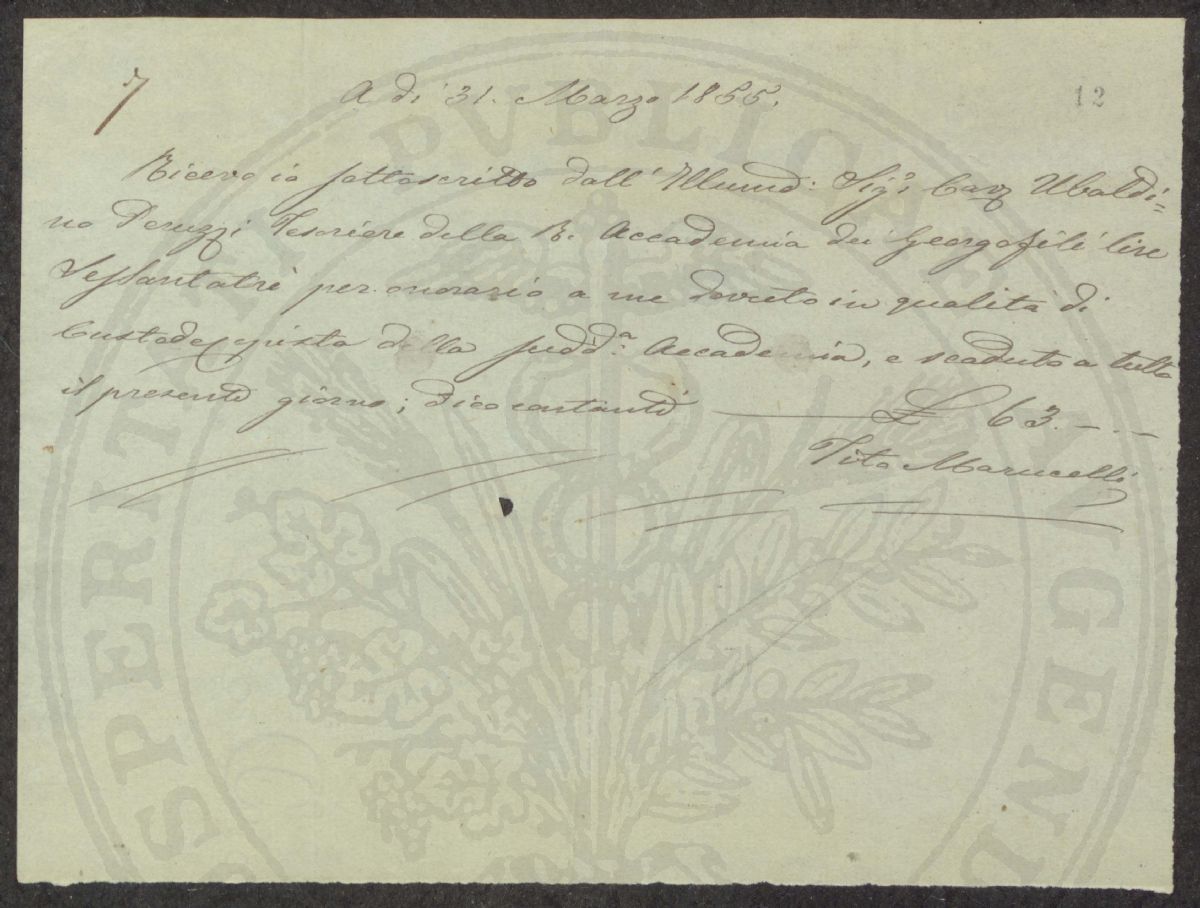 7
A dì 31. Marzo 1855.
12
Ricevo io sottoscritto dall' Illumo: Sigr: Cavz Ubaldi=
no Peruzzi Tesoriere della R. Accademia dei Georgofili lire
Sessantatrè per onorario a me dovuto in qualità di
Custode copista della sudda: Accademia, e scaduto a tutto
il presente giorno; dico contanti £ 63. - - -
Tito Marucelli
PROSPERITATI PVBLICAE AVGENDAE